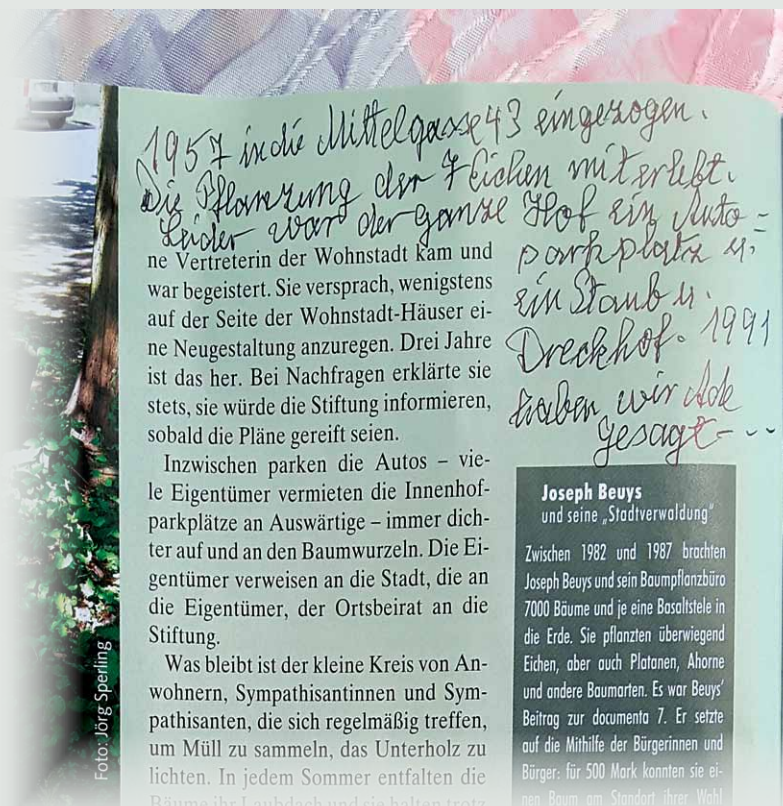 1957 in die Mittelgasse 43 eingezogen.
Die Pflanzung der 7 Eichen miterlebt.
Leider war der ganze Hof ein Auto=
parkplatz u.
ein Staub u.
Dreckhof. 1991
haben wir Ade
gesagt - - -
ne Vertreterin der Wohnstadt kam und
war begeistert. Sie versprach, wenigstens
auf der Seite der Wohnstadt-Häuser ei-
ne Neugestaltung anzuregen. Drei Jahre
ist das her. Bei Nachfragen erklärte sie
stets, sie würde die Stiftung informieren,
sobald die Pläne gereift seien.
Inzwischen parken die Autos – vie-
le Eigentümer vermieten die Innenhof-
parkplätze an Auswärtige – immer dich-
ter auf und an den Baumwurzeln. Die Ei-
gentümer verweisen an die Stadt, die an
die Eigentümer, der Ortsbeirat an die
Stiftung.
Was bleibt ist der kleine Kreis von An-
wohnern, Sympathisantinnen und Sym-
pathisanten, die sich regelmäßig treffen,
um Müll zu sammeln, das Unterholz zu
lichten. In jedem Sommer entfalten die
Bäume ihr Laubdach und sie halten trotz
Joseph Beuys
und seine „Stadtverwaldung"
Zwischen 1982 und 1987 brachten
Joseph Beuys und sein Baumpflanzbüro
7000 Bäume und je eine Basaltstele in
die Erde. Sie pflanzten überwiegend
Eichen, aber auch Platanen, Ahorne
und andere Baumarten. Es war Beuys'
Beitrag zur documenta 7. Er setzte
auf die Mithilfe der Bürgerinnen und
Bürger: für 500 Mark konnten sie ei-
nen Baum am Standort ihrer Wahl
Foto: Jörg Sperling